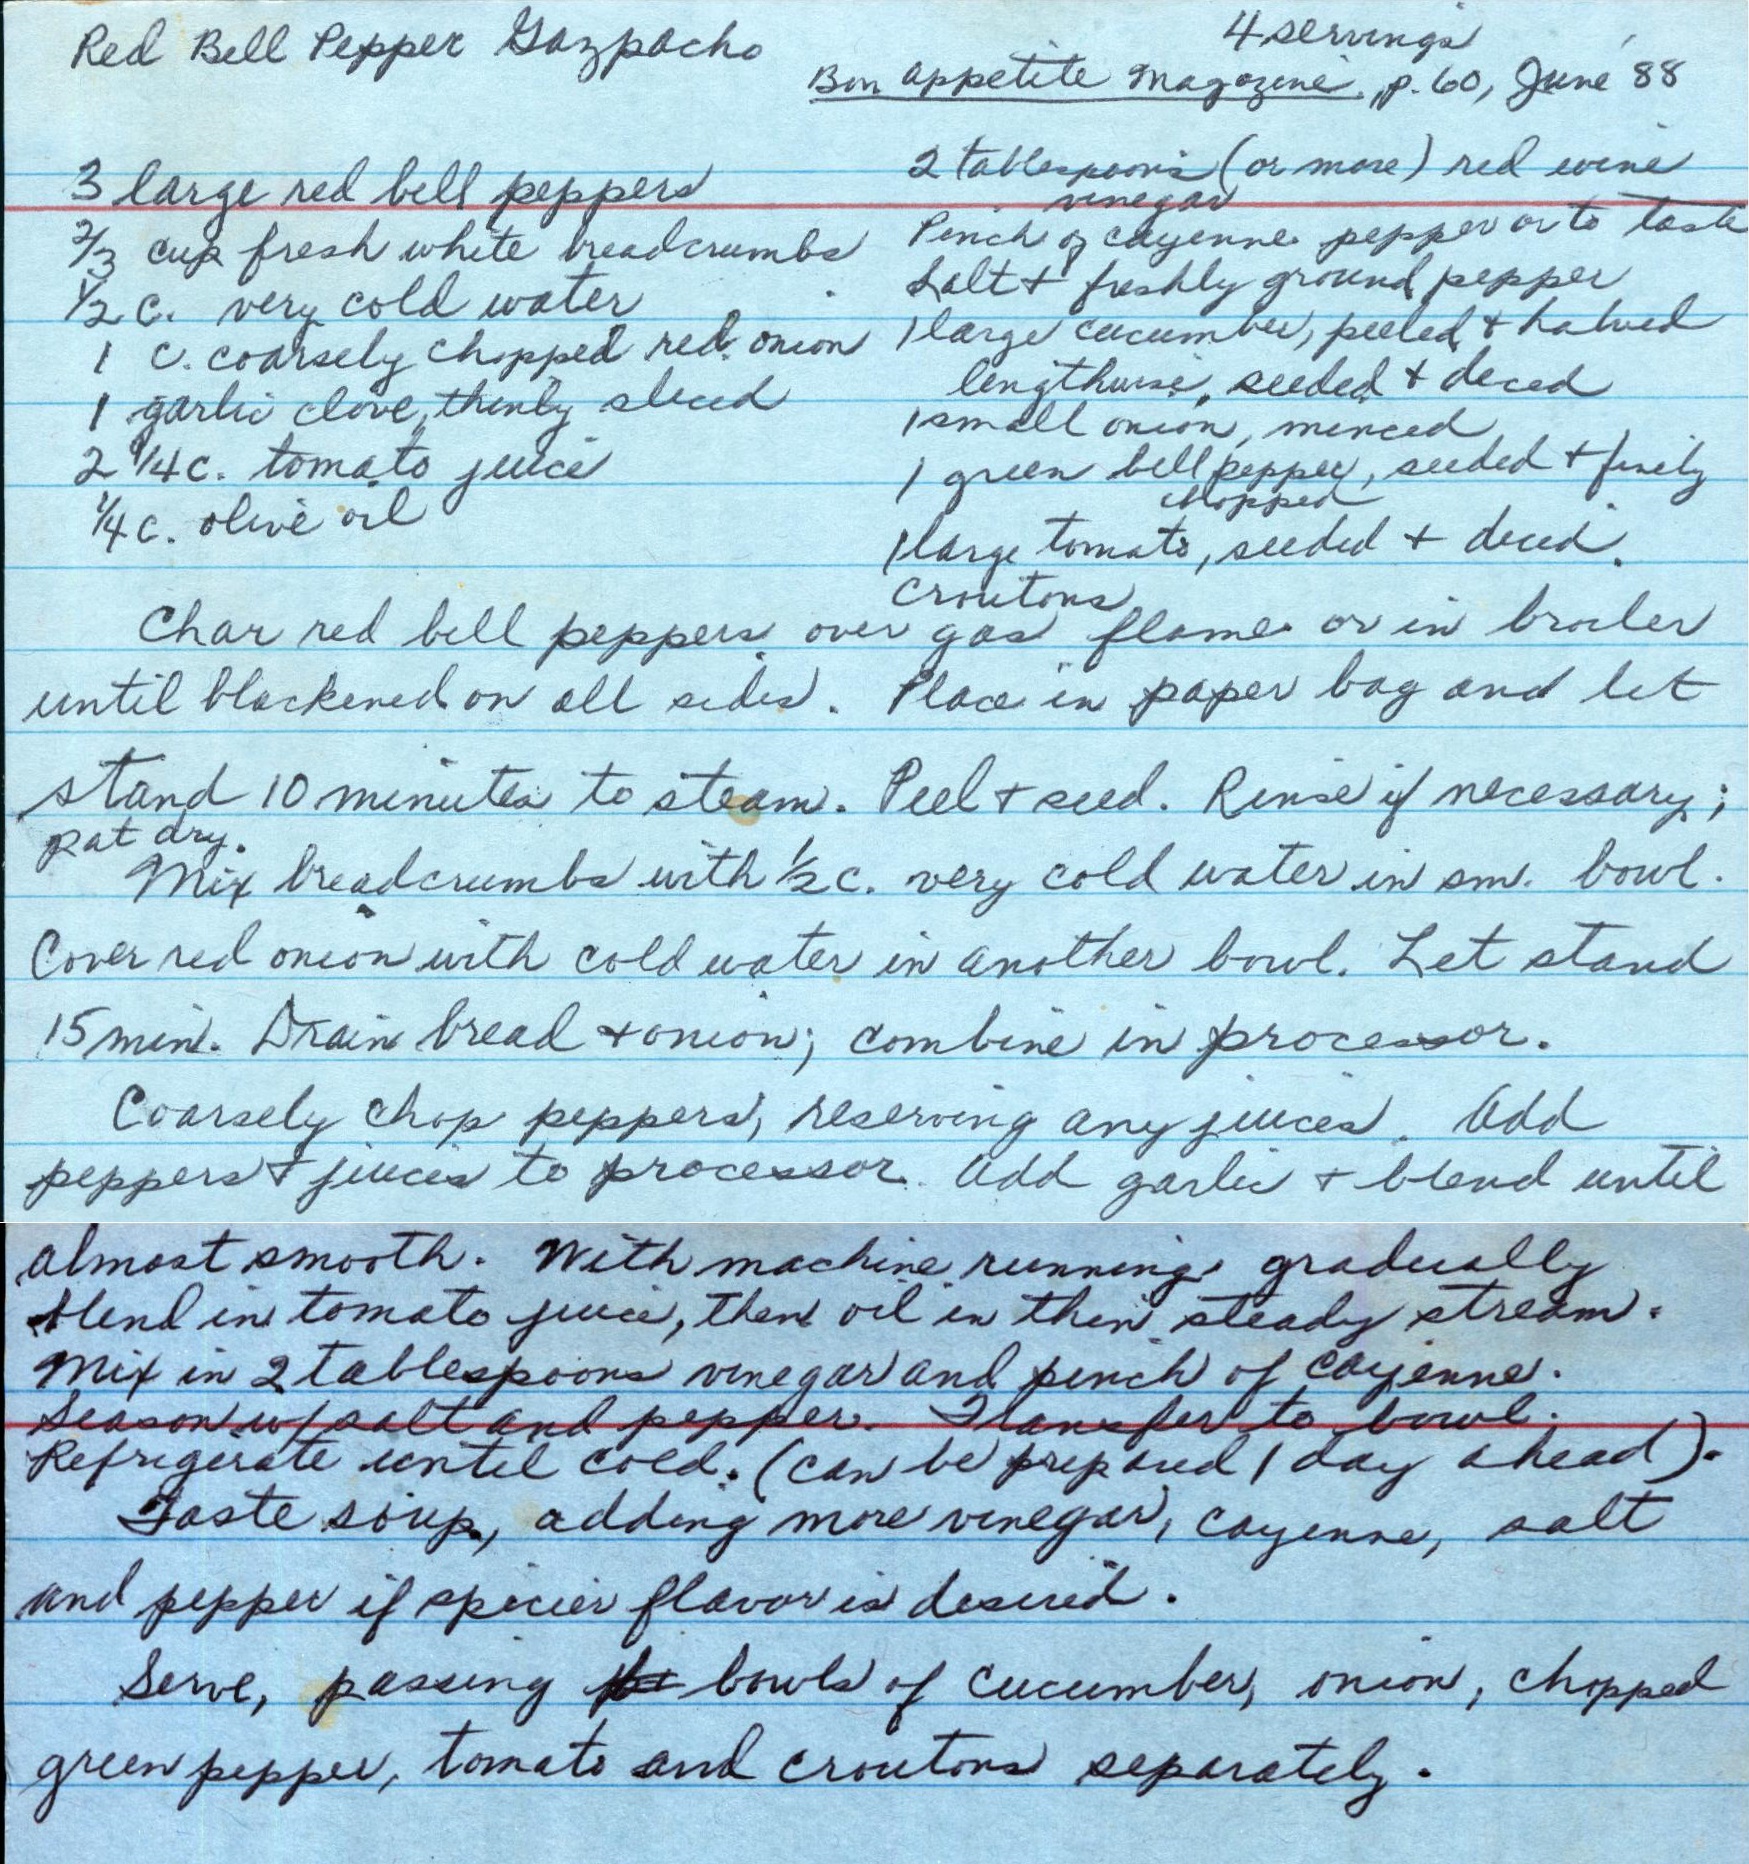 Red Bell Pepper Gazpacho
4 servings
Bon appetite Magazine, p. 60, June '88
3 large red bell peppers
2/3 cup fresh white breadcrumbs
1/2 c. very cold water
1 c. coarsely chopped red onion
1 garlic clove, thinly sliced
2 1/4 c. tomato juice
1/4 c. olive oil
2 tablespoons (or more) red wine
vinegar
Pinch of cayenne pepper or to taste
Salt + freshly ground pepper
1 large cucumber, peeled + halved
lengthwise, seeded + diced
1 small onion, minced
1 green bell pepper, seeded + finely
chopped
1 large tomato, seeded + diced.
Croutons
Char red bell peppers over gas flame or in broiler
until blackened on all sides. Place in paper bag and let
stand 10 minutes to steam. Peel + seed. Rinse if necessary;
pat dry.
Mix breadcrumbs with 1/2 c. very cold water in sm. bowl.
Cover red onion with cold water in another bowl. Let stand
15 min. Drain bread + onion; combine in processor.
Coarsely chop peppers, reserving any juices. Add
peppers + juices to processor. Add garlic + blend until
almost smooth. With machine running, gradually
blend in tomato juice, then oil in thin steady stream.
Mix in 2 tablespoons vinegar and pinch of cayenne.
Season w/ salt and pepper. Transfer to bowl.
Refrigerate until cold. (can be prepared 1 day ahead).
Taste soup, adding more vinegar, cayenne, salt
and pepper if spicier flavor is desired.
Serve, passing bowls of cucumber, onion, chopped
green pepper, tomato and croutons separately.